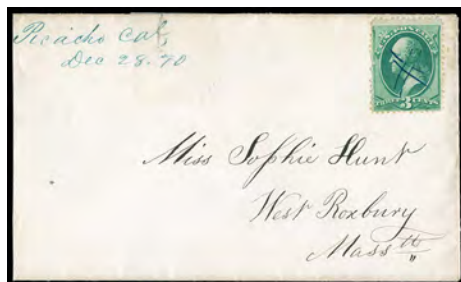 Picacho Cal
Dec 28. 70
U.S. POSTAGE
THREE 3 CENTS
Miss Sophie Hunt
West Roxbury
Massᵗᵗˢ